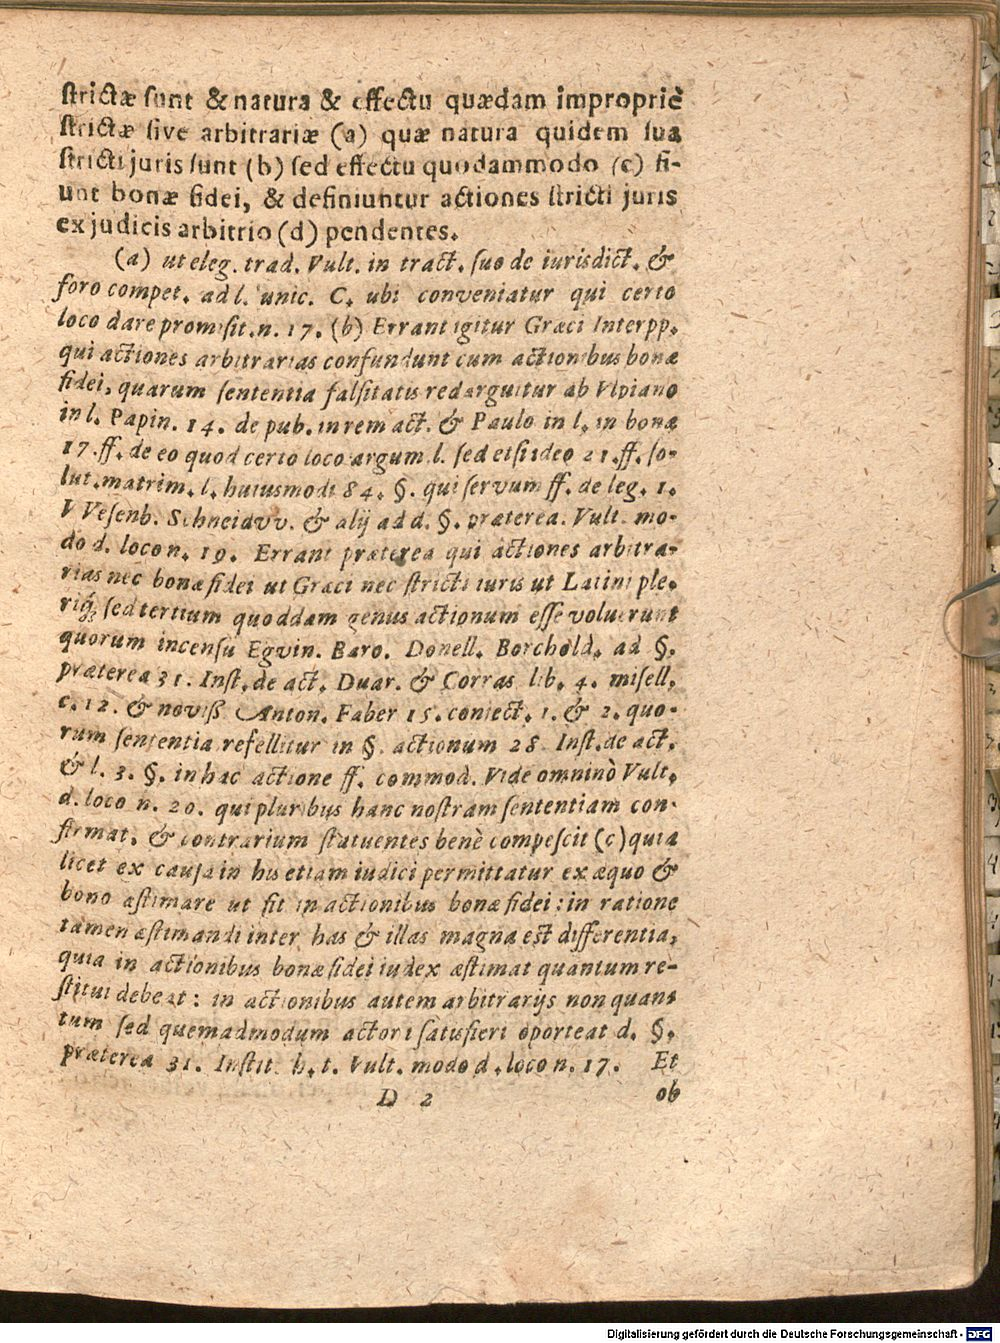 strictæ sunt & natura & effectu quædam impropriè
strictæ sive arbitrariæ (a) quæ natura quidem sua
stricti juris sunt (b) sed effectu quodammodo (c) fi-
unt bonæ fidei, & definiuntur actiones stricti juris
ex judicis arbitrio (d) pendentes.
(a) ut eleg. trad. Vult. in tract. suo de iurisdict. &
foro compet. ad l. unic. C. ubi conveniatur qui certo
loco dare promisit. n. 17. (b) Errant igitur Græci Interpp.
qui actiones arbitrarias confundunt cum actionibus bonæ
fidei, quarum sententia falsitatis redarguitur ab Vlpiano
in l. Papin. 14. de pub. in rem act. & Paulo in l. in bonæ
17. ff. de eo quod certo loco argum. l. sed etsi ideo 21. ff. so-
lut. matrim. l. huiusmodi 84. §. qui servum ff. de leg. 1.
VVesenb. Schneidvv. & alij ad d. §. præterea. Vult. mo-
do d. loco n. 19. Errant præterea qui actiones arbitra-
rias nec bonæ fidei ut Græci nec stricti iuris ut Latini ple-
riq; sed tertium quoddam genus actionum esse voluerunt
quorum incensu Egvin. Baro. Donell. Borchold. ad §.
præterea 31. Inst. de act. Duar. & Corras lib. 4. misell.
c. 12. & noviß Anton. Faber 15. coniect. 1. & 2. quo-
rum sententia refellitur in §. actionum 28 Inst. de act.
& l. 3. §. in hac actione ff. commod. Vide omninò Vult.
d. loco n. 20. qui pluribus hanc nostram sententiam con-
firmat, & contrarium statuentes benè compescit (c) quia
licet ex causa in his etiam iudici permittatur ex æquo &
bono æstimare ut fit in actionibus bonæ fidei: in ratione
tamen æstimandi inter has & illas magna est differentia,
quia in actionibus bonæ fidei iudex æstimat quantum re-
stitui debeat: in actionibus autem arbitrarijs non quan-
tum sed quemadmodum actori satisfieri oporteat d. §.
præterea 31. Instit. h. t. Vult. modo d. loco n. 17. Et
D 2 ob
Digitalisierung gefördert durch die Deutsche Forschungsgemeinschaft - DFG